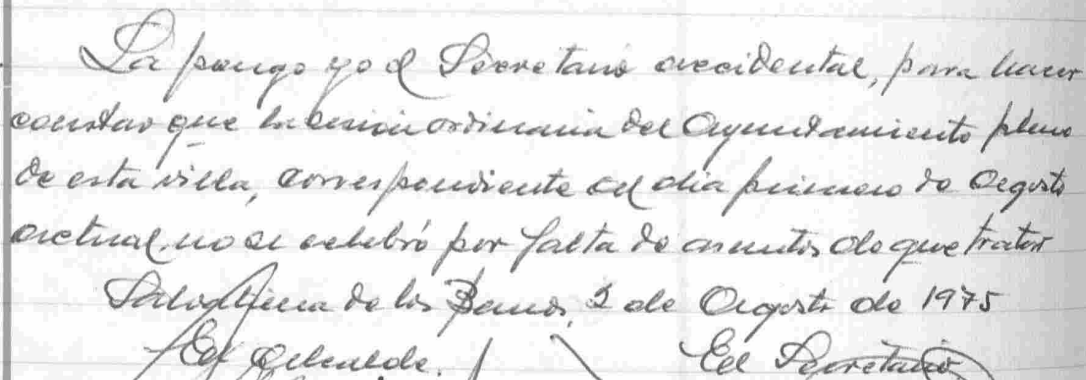 La pongo yo el Secretario accidental, para hacer
constar que la sesion ordinaria del Ayuntamiento pleno
de esta villa, correspondiente al dia primero de Agosto
actual, no se celebró por falta de asuntos de que tratar
de los Baños, 2 de Agosto de 1975
El Alcalde. El Secretario